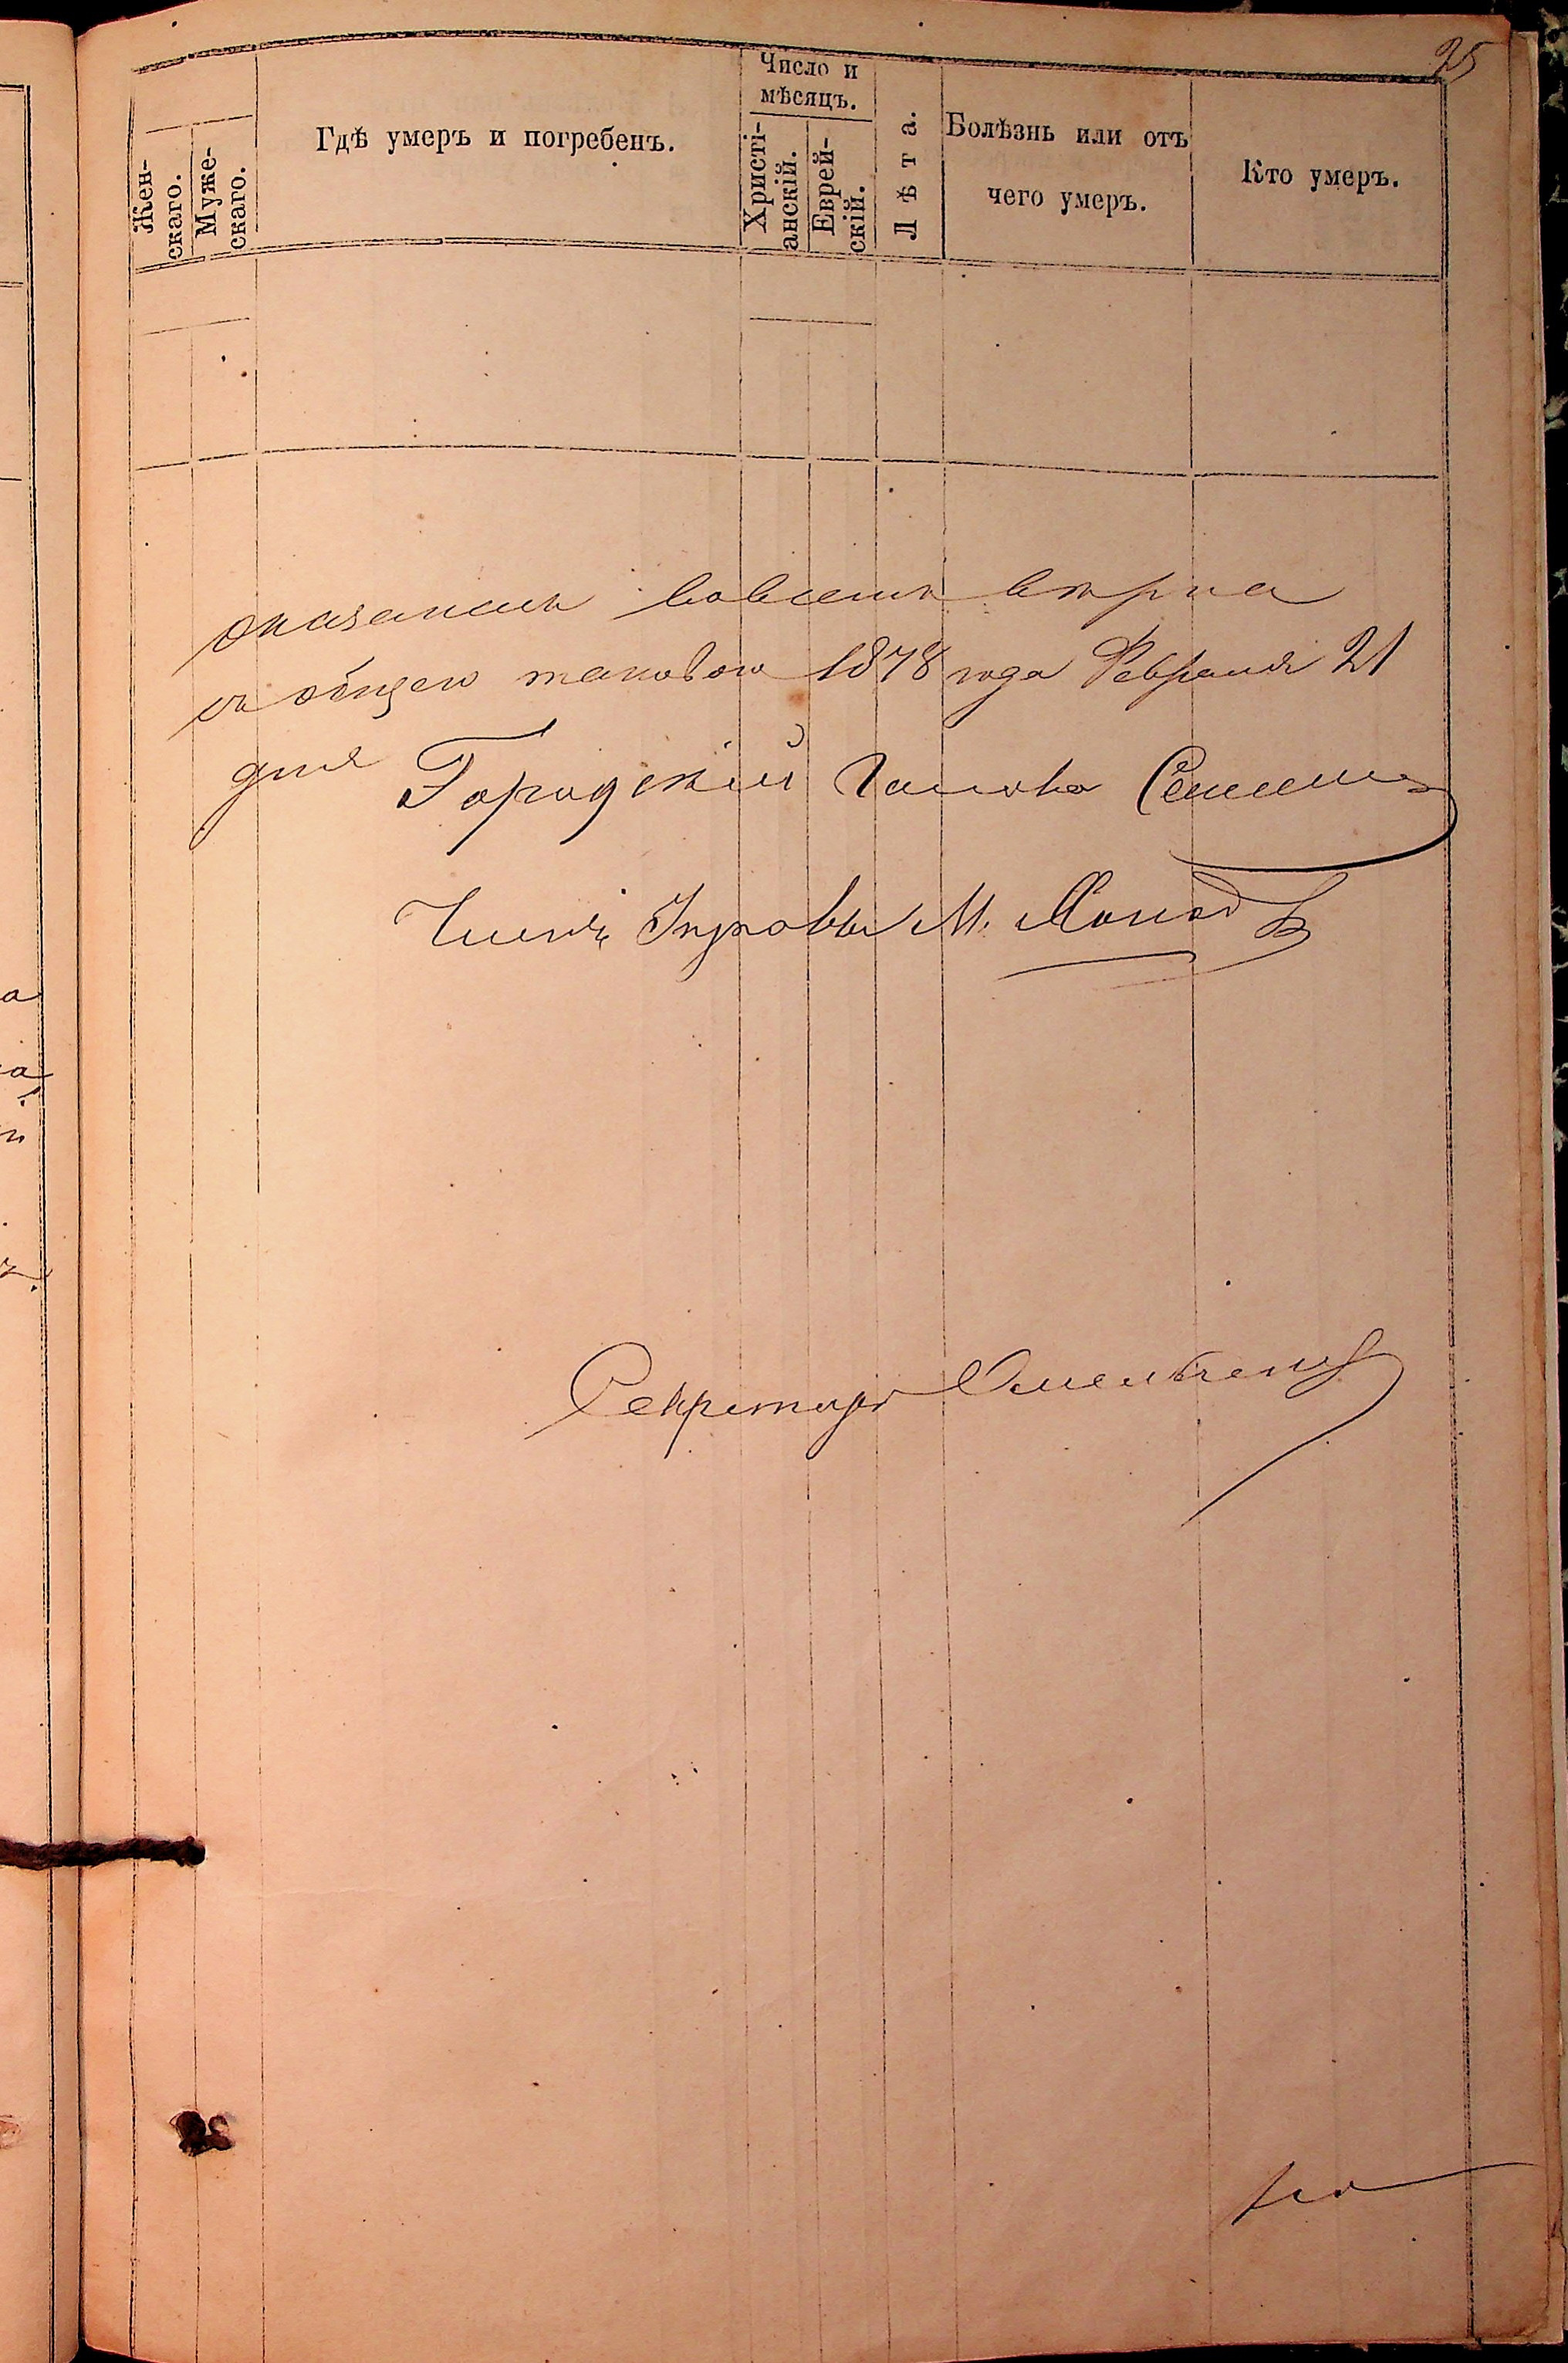 25
Жен-
скаго.
Муже-
скаго.
Гдѣ умеръ и погребенъ.
Число и
мѣсяцъ.
Христі-
анскій.
Еврей-
скій.
Лѣта.
Болѣзнь или отъ
чего умеръ.
Кто умеръ.
оказалась вовсемъ вѣрна
съ общею таковою 1878 года Февраля 21
дня
Городской Голова
Членъ Управы М.
Секретарь